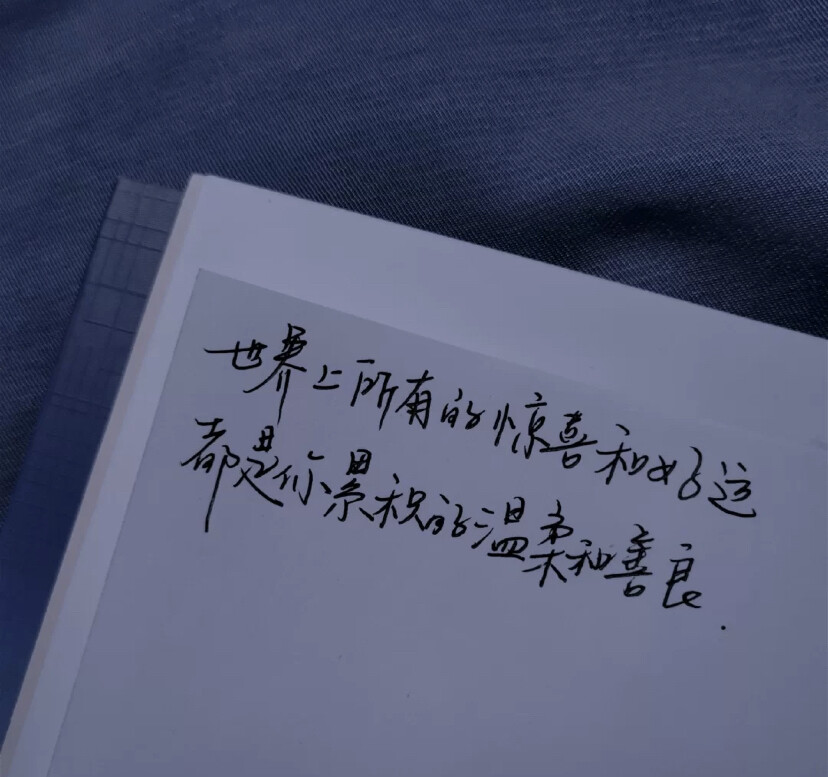 世界上所有的惊喜和好运
都是你累积的温柔和善良.